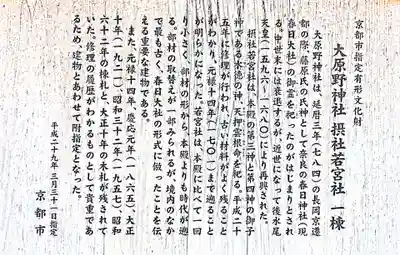 京都市指定有形文化財
大原野神社 摂社若宮社 一棟
大原野神社は、延暦三年(七八四)の長岡京遷
都の際、藤原氏の氏神として奈良の春日神社(現
春日大社)の御霊を祀ったのがはじまりとされ
る。中世末には衰退するが、近世になって後水尾
天皇(一五九六〜一六八〇)により再興された。
摂社若宮社は、本殿の第三神と第四神の御子
神である若宮の神・天押雲根命を祀る。平成二十
五年に修理が行われ、古い材料がよく残ること
がわかり、元禄十四年(一七〇一)まで遡ること
が明らかになった。若宮社は、本殿に比べて一回
り小さく、部材の形から、本殿よりも時代が遡
る。部材の取替えが一部みられるが、境内のなか
で最も古く、春日大社の形式に倣ったことを伝
える重要な建物である。
また、元禄十四年、慶応元年(一八六五)、大正
十年(一九二一)、昭和三十二年(一九五七)、昭和
六十二年の棟札と、大正十年の木札が残されて
いた。修理の履歴がわかるものとして貴重であ
るため、建物とあわせて附指定となった。
平成二十九年三月三十一日指定
京都市